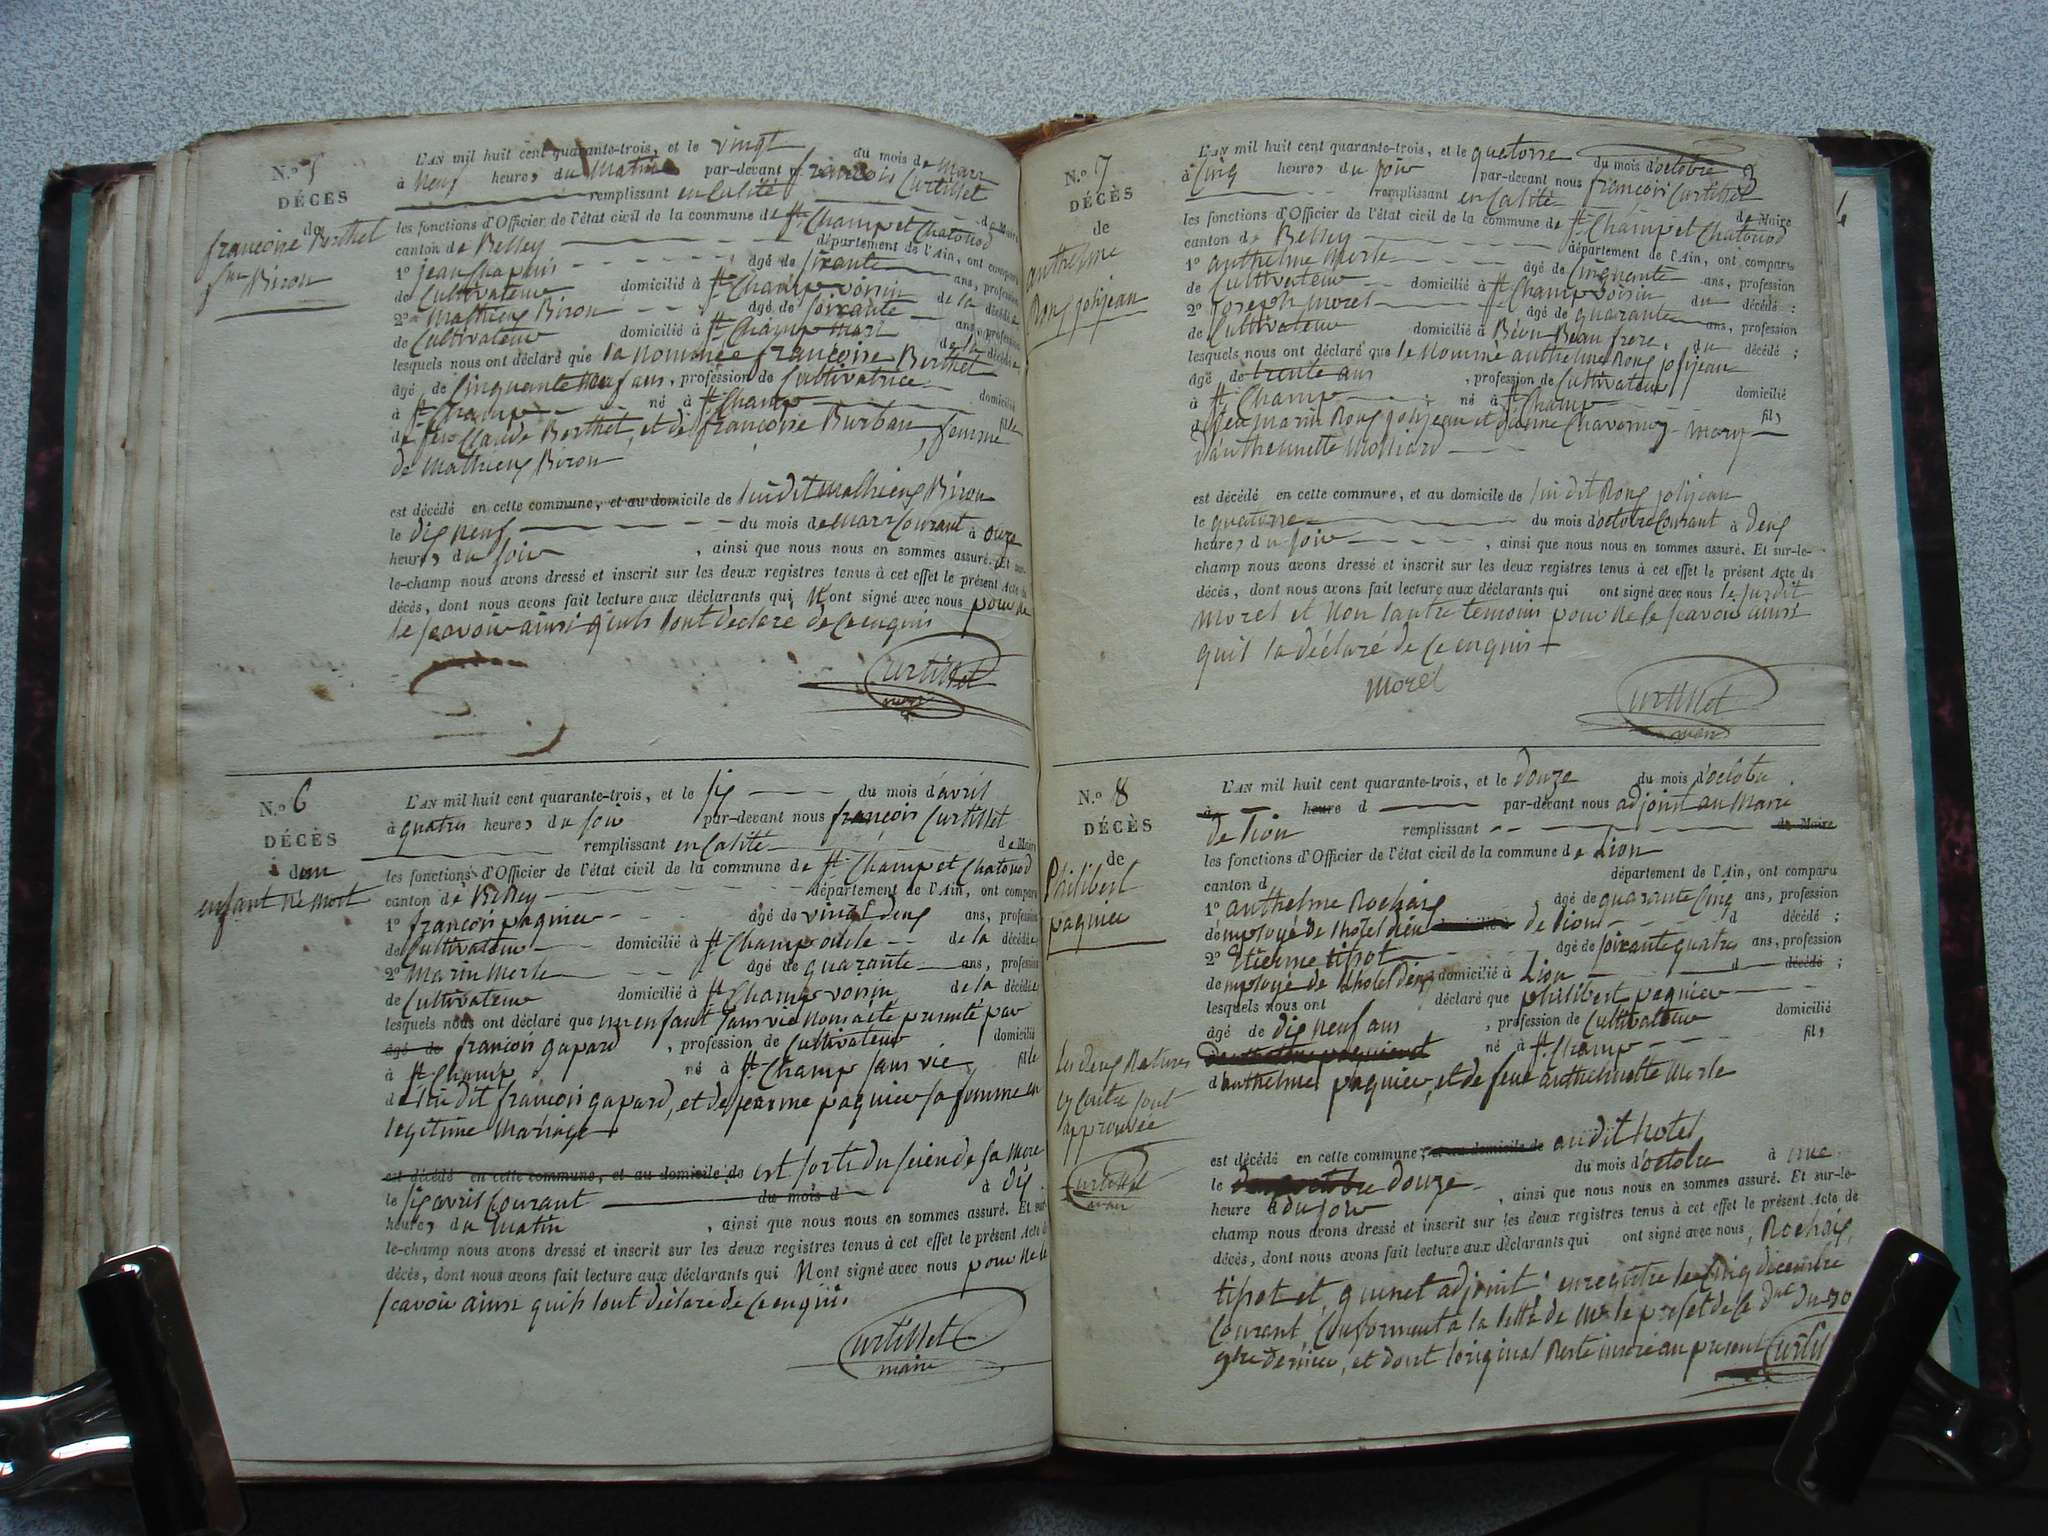 N.o 5
DÉCES
de
francoise Berthet
fme Biron
L'AN mil huit cent quarante-trois, et le vingt du mois de mars
à neuf heures du matin par-devant francois Curtillet
remplissant en Calité de Maire
les fonctions d'Officier de l'état civil de la commune de St Champ et Chatonod
canton de Belley département de l'Ain, ont comparu
1o jean Chapuis âgé de soixante ans, profession
de Cultivateur domicilié à St Champ voisin de la décédée
2o Mathieux Biron âgé de soixante ans, profession
de Cultivateur domicilié à St Champ mari de la décédée,
lesquels nous ont déclaré que la nommée françoise Berthet
âgé de Cinquante neuf ans, profession de Cultivatrice
à St Champ né à St Champ domicilié
de feu Claude Berthet, et de françoise Burban, femme fille
de Mathieux Biron
est décédé en cette commune, et au domicile de sudit Mathieux Biron
le dix neuf du mois de mars Courant à onze
heures du soir , ainsi que nous nous en sommes assuré. Et sur-
le-champ nous avons dressé et inscrit sur les deux registres tenus à cet effet le présent Acte de
décès, dont nous avons fait lecture aux déclarants qui Nont signé avec nous pour ne
le scavoir ainsi quils lont declaré de ce enquis
Curtillet
maire
N.o 6
DÉCÈS
d'un
enfant né mort
L'AN mil huit cent quarante-trois, et le six du mois d'avril
à quatres heures du soir par-devant nous françois Curtillet
remplissant en Calité de Maire
les fonctions d'Officier de l'état civil de la commune de St Champ et Chatonod
canton de Belley département de l'Ain, ont comparu
1o françois paquier âgé de vingt deux ans, profession
de Cultivateur domicilié à St Champ oncle de la décédée
2o Marin Merle âgé de quarante ans, profession
de Cultivateur domicilié à St Champ voisin de la décédée
lesquels nous ont déclaré que un enfant sans vie nous a eté presenté par
âgé de françois gapard , profession de Cultivateur domicilié
à St Champ né à St Champ sans vie fille
de su dit françois gapard, et de jeanne paquier sa femme en
legitime mariage
est décédé en cette commune, et au domicile de est sorti du seien de sa mere
le six avril Courant du mois d à dix
heures du matin , ainsi que nous nous en sommes assuré. Et sur-
le-champ nous avons dressé et inscrit sur les deux registres tenus à cet effet le présent Acte de
décès, dont nous avons fait lecture aux déclarants qui Nont signé avec nous pour ne le
scavoir ainsi quils lont déclaré de ce enquis
Curtillet
maire
3
N.o 7
DÉCÈS
de
anthelme
Roux jolijean
L'AN mil huit cent quarante-trois, et le quatorse du mois d'octobre
à Cinq heures du soir par-devant nous françois Curtillet
remplissant en Calité de Maire
les fonctions d'Officier de l'état civil de la commune de St Champ et Chatonod
canton de Belley département de l'Ain, ont comparu
1o anthelme Merle âgé de Cinquante ans, profession
de Cultivateur domicilié à St Champ voisin du décédé ;
2o Joseph Morel âgé de quarante ans, profession
de Cultivateur domicilié à Béon Beau frere, du décédé ;
lesquels nous ont déclaré que le nommé anthelme Roux jolijean
âgé de trente ans , profession de Cultivateur
à St Champ né à St Champ domicilié
de feu Marin Roux jolijean et de jeanne Chavornoy mary fils
d'anthelmette Molliard
est décédé en cette commune, et au domicile de sudit Roux jolijean
le quatorse du mois d'octobre Courant à deux
heures du soir , ainsi que nous nous en sommes assuré. Et sur-le-
champ nous avons dressé et inscrit sur les deux registres tenus à cet effet le présent Acte de
décès, dont nous avons fait lecture aux déclarants qui ont signé avec nous le susdit
Morel et non lautre temoin pour ne le scavoir ainsi
quil la déclaré de ce enquis
Morel
Curtillet
maire
N.o 8
DÉCÈS
de
Philibert
paquier
les deux Ratures
cy Contre sont
approuvée
Curtillet
maire
L'AN mil huit cent quarante-trois, et le douze du mois d'octobre
à heure d par-devant nous adjoint au Maire
de Lion remplissant de Maire
les fonctions d'Officier de l'état civil de la commune de Lion
canton d département de l'Ain, ont comparu
1o anthelme Rochaix âgé de quarante Cinq ans, profession
demployé de lhotel dieu domicilié à de Lion d décédé ;
2o Etienne tissot âgé de soixante quatres ans, profession
demployé de Lhotel dieux domicilié à Lion d décédé ;
lesquels nous ont déclaré que philibert paquier
âgé de dix neuf ans , profession de Cultivateur domicilié
né à St Champ fils
d'anthelme paquier, et de feue anthelmette Merle
est décédé en cette commune, et au domicile de audit hotel
le douze du mois d'octobre à une
heure du soir , ainsi que nous nous en sommes assuré. Et sur-le-
champ nous avons dressé et inscrit sur les deux registres tenus à cet effet le présent Acte de
décès, dont nous avons fait lecture aux déclarants qui ont signé avec nous, Rochaix,
tissot et quinet adjoint. enregistre le Cinq décembre
Courant, Conforment a la lettre de Mr le prefet de Ce dmt du 30
9bre dernier, et dont loriginal Reste inseré au present Curtillet